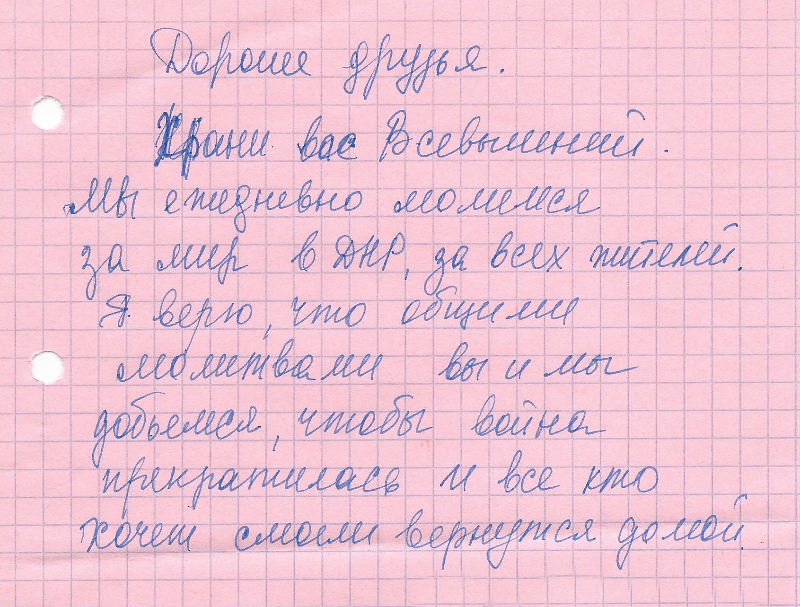 Дорогие друзья.
Храни вас Всевышний.
Мы ежедневно молимся
за мир в ДНР, за всех жителей.
Я верю, что общими
молитвами вы и мы
добьемся, чтобы война
прекратилась и все кто
хочет смогли вернутся домой.